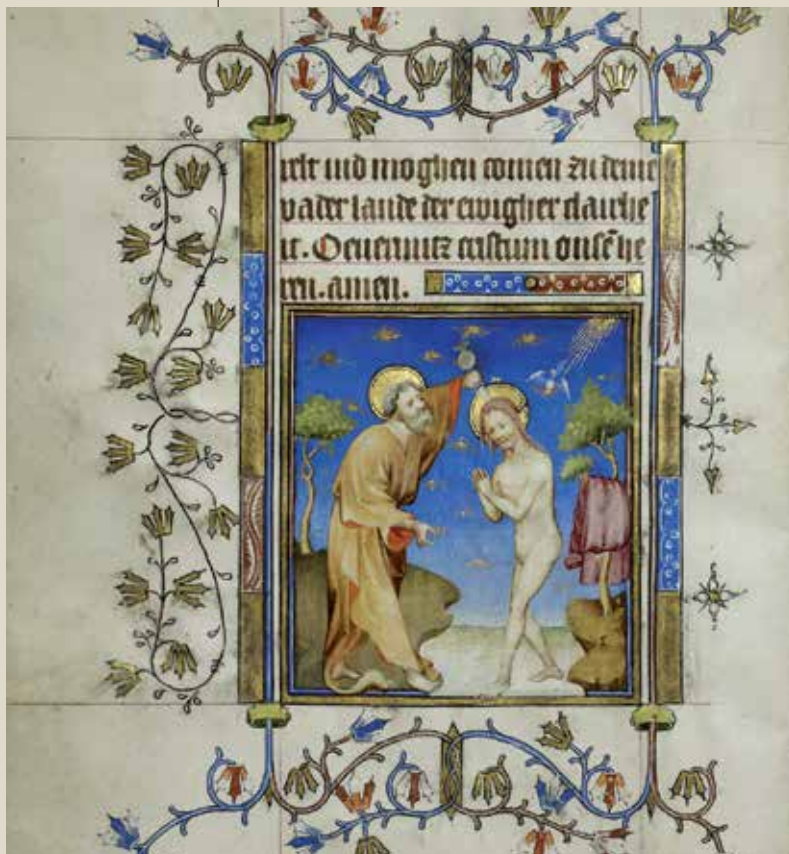 relt ind moghen comen zu deme
vader lande der ewigher clairhe
it. Oeuermitz cristum onsē he
ren. amen.